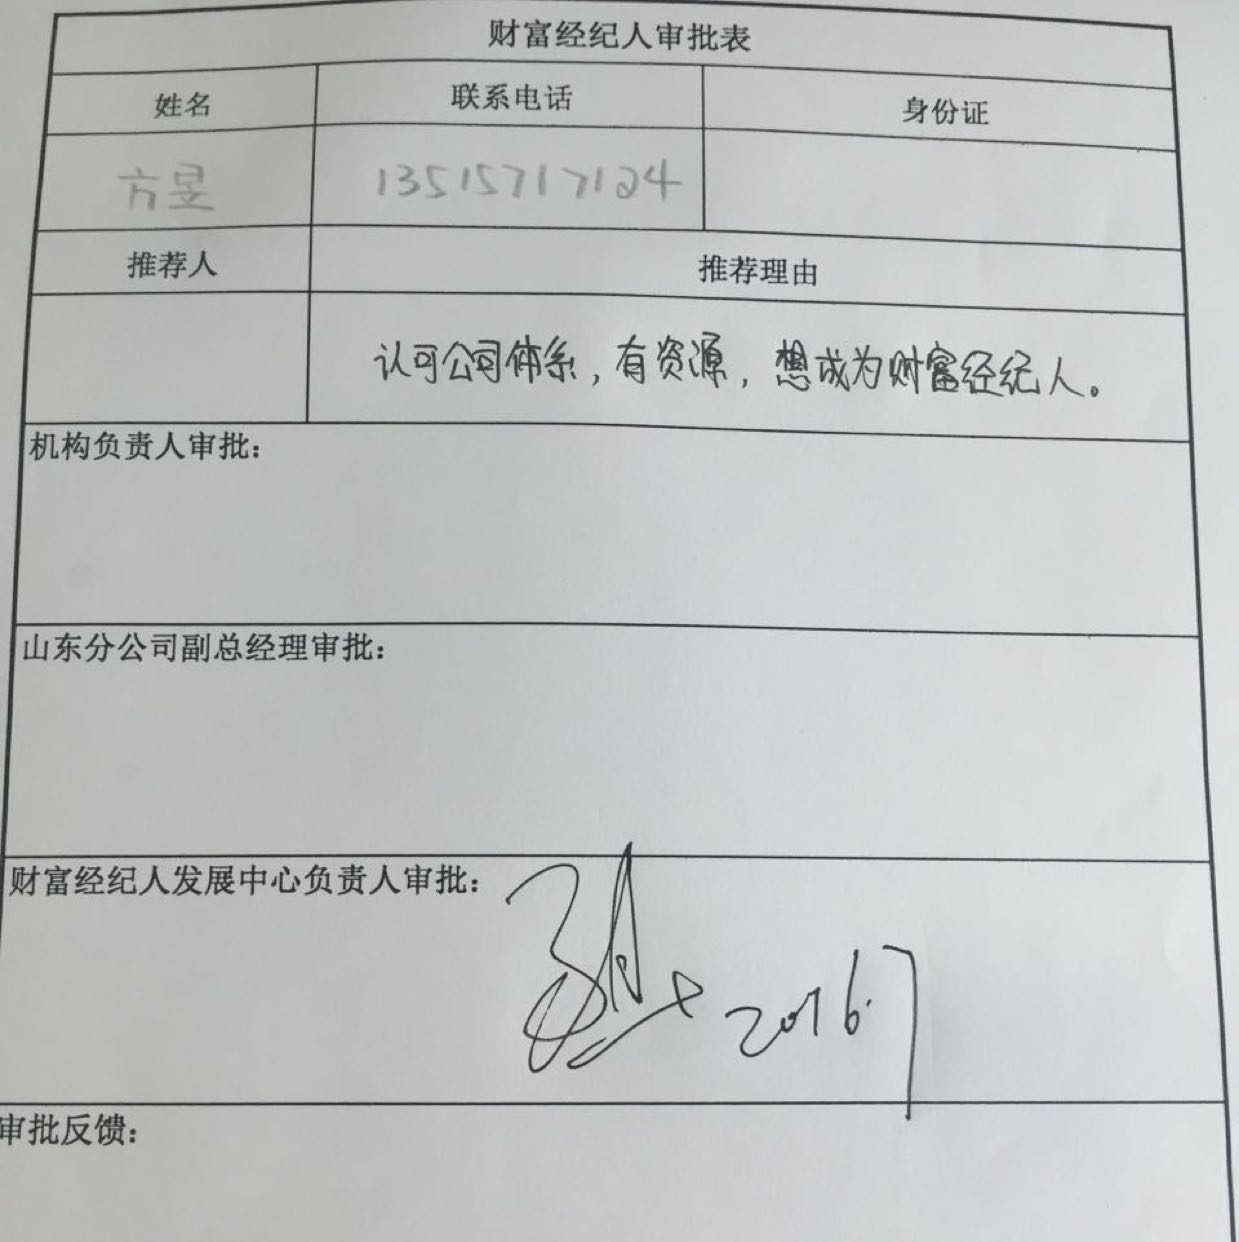 财富经纪人审批表
姓名 联系电话 身份证
方昱 13515717124
推荐人 推荐理由
认可公司体系，有资源，想成为财富经纪人。
机构负责人审批：
山东分公司副总经理审批：
财富经纪人发展中心负责人审批：
2016.7
审批反馈：